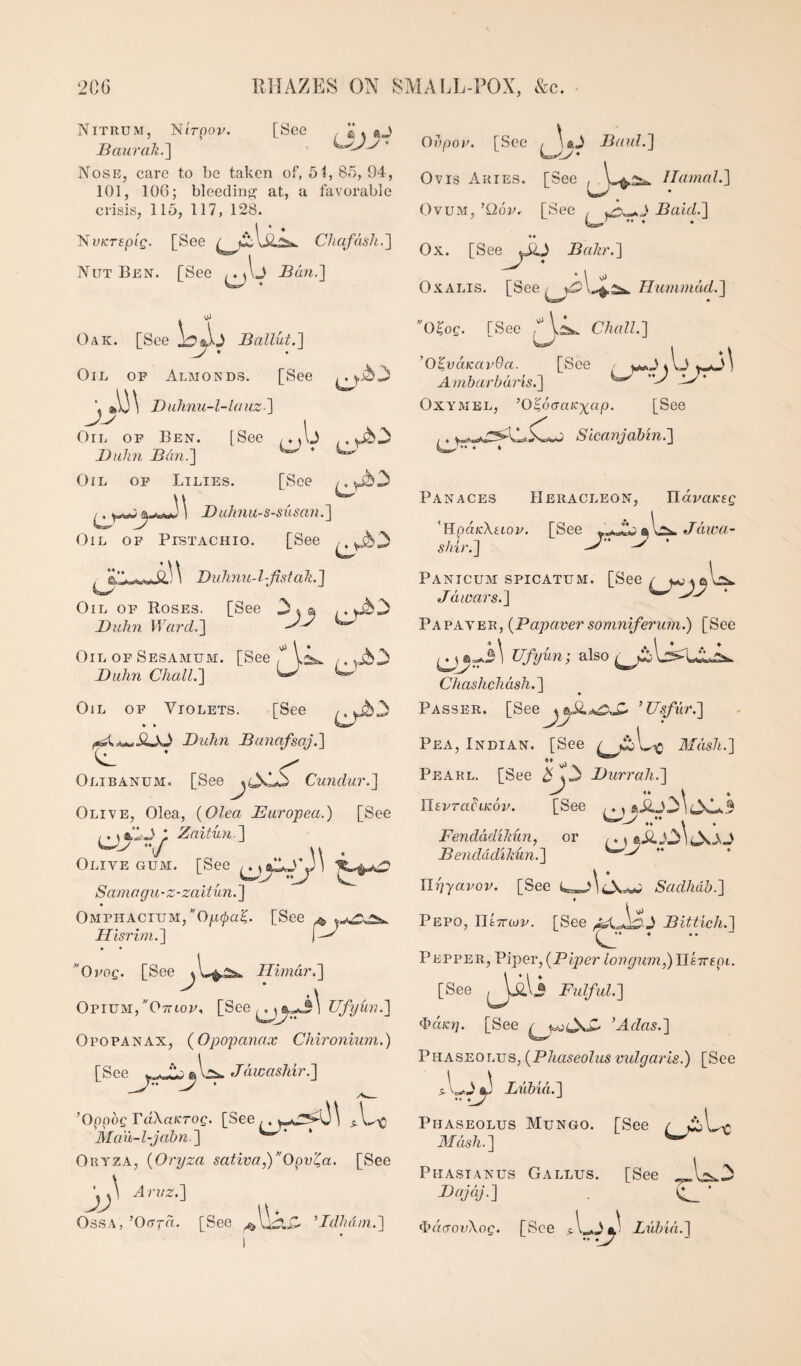 206 RHAZES ON SMALL-POX, &c.
Nitrum, Νίτρον. [See بورق
Baurak.]
Nose, care to be taken of, 51, 85, 94,
101, 106; bleeding at, a favorable
crisis, 115, 117, 128.
Νυκτερίς. [See خفاش Chafásh.]
Nut Ben. [See بان Bán.]
Oak. [See بلوط Ballút.]
Oil of Almonds. [See دهن
اللوز Duhnu-l-lauz.]
Oil of Ben. [See دهن بان
Duhn Bán.]
Oil of Lilies. [See دهن
السوسن Duhnu-s-súsan.]
Oil of Pistachio. [See دهن
الفستق Duhnu-l-fistak.]
Oil of Roses. [See دهن ورد
Duhn Ward.]
Oil of Sesamum. [See دهن خلّ
Duhn Chall.]
Oil of Violets. [See دهن
بنفسج Duhn Banafsaj.]
Olibanum. [See كندر Cundur.]
Olive, Olea, (Olea Europea.) [See
زيتون Zaitún.]
Olive gum. [See صمغ الزيتون
Samagu-z-zaitún.]
Omphacium, Ὄμφαξ. [See حصرم
Hisrim.]
Ὄνος. [See حمار Himár.]
Opium, Ὄπιον, [See افيون Ufyún.]
Opopanax, (Opopanax Chironium.)
[See جاوشير Jáwashír.]
Ὀρρὸς Γάλακτος. [See ماء الجبن
Maü-l-jabn.]
Oryza, (Oryza sativa,) Ὄρυζα. [See
ارز Aruz.]
Ossa, Ὀστᾶ. [See عظام 'Idhám.]
Οὖρον. [See بول Baul.]
Ovis Aries. [See حمل Hamal.]
Ovum, Ὠόν. [See بيض Baid.]
Ox. [See بقر Bakr.]
Oxalis. [See حمّاض Hummád.]
Ὄξος. [See خلّ Chall.]
Ὀξυάκανθα. [See امبرباريس
Ambarbáris.]
Oxymel, Ὀξόσακχαρ. [See
سكنجبين Sicanjabín.]
Panaces Heracleon, Πάνακες
Ἡράκλειον. [See جاوشير Jáwa-
shír.]
Panicum spicatum. [See جاورس
Jáwars.]
Papaver, (Papaver somniferum.) [See
افيون Ufyún; also خشخاش
Chashchásh.]
Passer. [See عصفور 'Usfúr.]
Pea, Indian. [See ماش Másh.]
Pearl. [See درّة Durrah.]
Πενταδικόν. [See فنداديقون
Fendádíkún, or بنداديقون
Bendádíkún.]
Πήγανον. [See سذاب Sadháb.]
Pepo, Πέπων. [See بطّيخ Bittích.]
Pepper, Piper, (Piper longum,) Πέπερι.
[See فلفل Fulful.]
Φάκη. [See عدس 'Adas.]
Phaseolus, (Phaseolus vulgaris.) [See
لوبياء Lúbiá.]
Phaseolus Mungo. [See ماش
Másh.]
Phasianus Gallus. [See دجاج
Dajáj.]
Φάσουλος. [See لوبياء Lúbiá.]